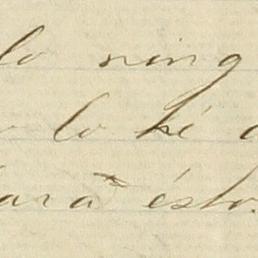 lo ning
lo hé
ara ésto.